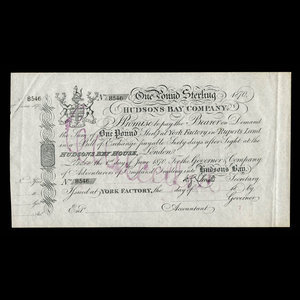 8546 No 8546 One Pound Sterling
HUDSONS BAY COMPANY.
Promise to pay the Bearer on Demand
the Sum of One Pound Sterlg at York Factory in Rupert's Land
in a Bill of Exchange payable Sixty days after Sight at the
HUDSONS BAY HOUSE, London.
Governor & Company
of Adventurers of England trading into Hudsons Bay.
No 8546 Secretary
Issued at YORK FACTORY, the day of 18 by
Governor
Entd. Accountant